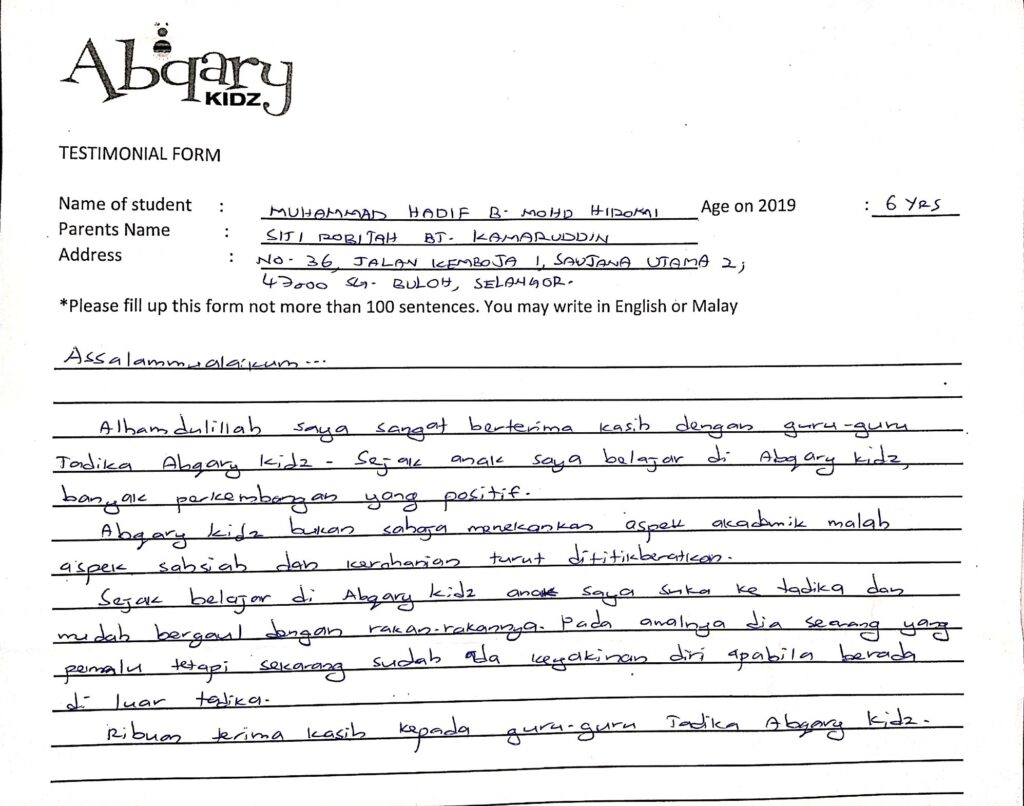 Abqary
KIDZ
TESTIMONIAL FORM
Name of student : MUHAMMAD HADIF B. MOHD HIROMI Age on 2019 : 6 YRS
Parents Name : SITI ROBITAH BT. KAMARUDDIN
Address : NO. 36, JALAN KEMBOJA 1, SAUJANA UTAMA 2,
47000 SG. BULOH, SELANGOR.
*Please fill up this form not more than 100 sentences. You may write in English or Malay
Assalammualaikum...
Alhamdulillah saya sangat berterima kasih dengan guru-guru
Tadika Abqary kidz. Sejak anak saya belajar di Abqary kidz,
banyak perkembangan yang positif.
Abqary kidz bukan sahaja menekankan aspek akademik malah
aspek sahsiah dan kerohanian turut dititikberatkan.
Sejak belajar di Abqary kidz anak saya suka ke tadika dan
mudah bergaul dengan rakan-rakannya. Pada awalnya dia seorang yang
pemalu tetapi sekarang sudah ada keyakinan diri apabila berada
di luar tadika.
Ribuan terima kasih kepada guru-guru Tadika Abqary kidz.